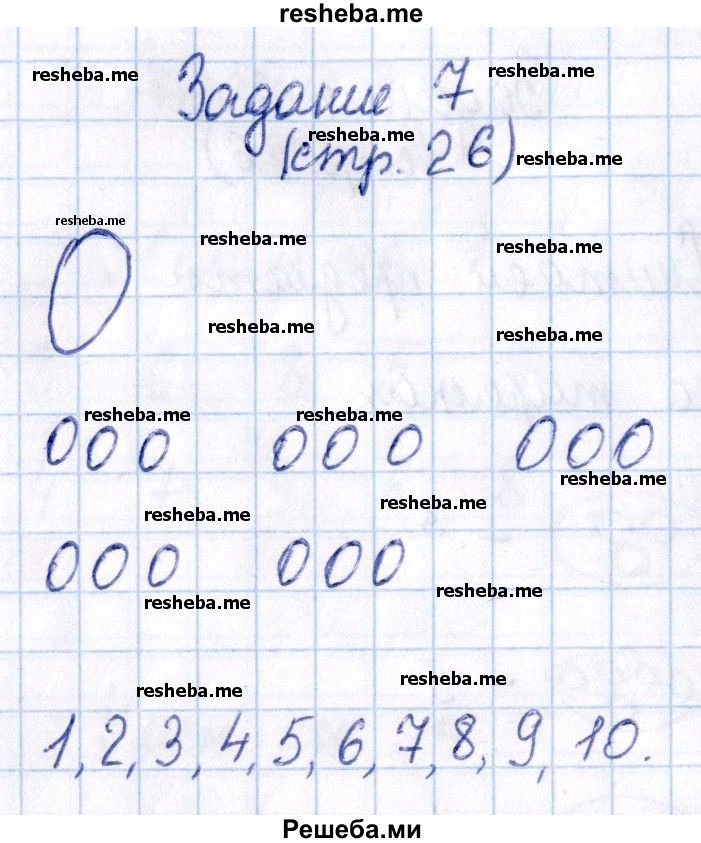 resheba.me
resheba.me resheba.me
Задание 7
resheba.me
(стр. 26) resheba.me
resheba.me
resheba.me resheba.me
0
resheba.me resheba.me
resheba.me resheba.me
0 0 0 0 0 0 0 0 0
resheba.me
resheba.me resheba.me
0 0 0 0 0 0
resheba.me resheba.me
resheba.me resheba.me
1, 2, 3, 4, 5, 6, 7, 8, 9, 10.
Решеба.ми